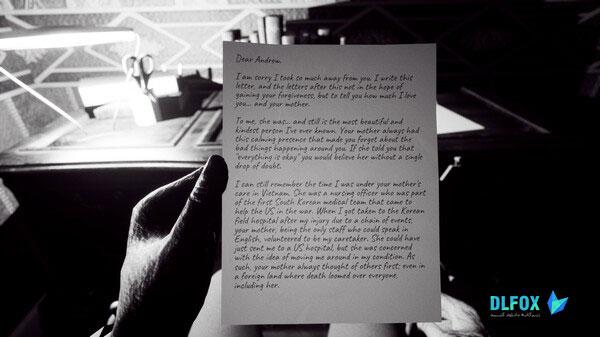 Dear Andrew,
I am sorry I took so much away from you. I write this
letter, and the letters after this not in the hope of
gaining your forgiveness, but to tell you how much I love
you... and your mother.
To me, she was... and still is the most beautiful and
kindest person I've ever known. Your mother always had
this calming presence that made you forget about the
bad things happening around you. If she told you that
"everything is okay" you would believe her without a single
drop of doubt.
I can still remember the time I was under your mother's
care in Vietnam. She was a nursing officer who was part
of the first South Korean medical team that came to
help the US in the war. When I got taken to the Korean
field hospital after my injury due to a chain of events,
your mother, being the only staff who could speak in
English, volunteered to be my caretaker. She could have
just sent me to a US hospital, but she was concerned
with the idea of moving me around in my condition. As
such, your mother always thought of others first; even in
a foreign land where death loomed over everyone,
including her.
DLFOX